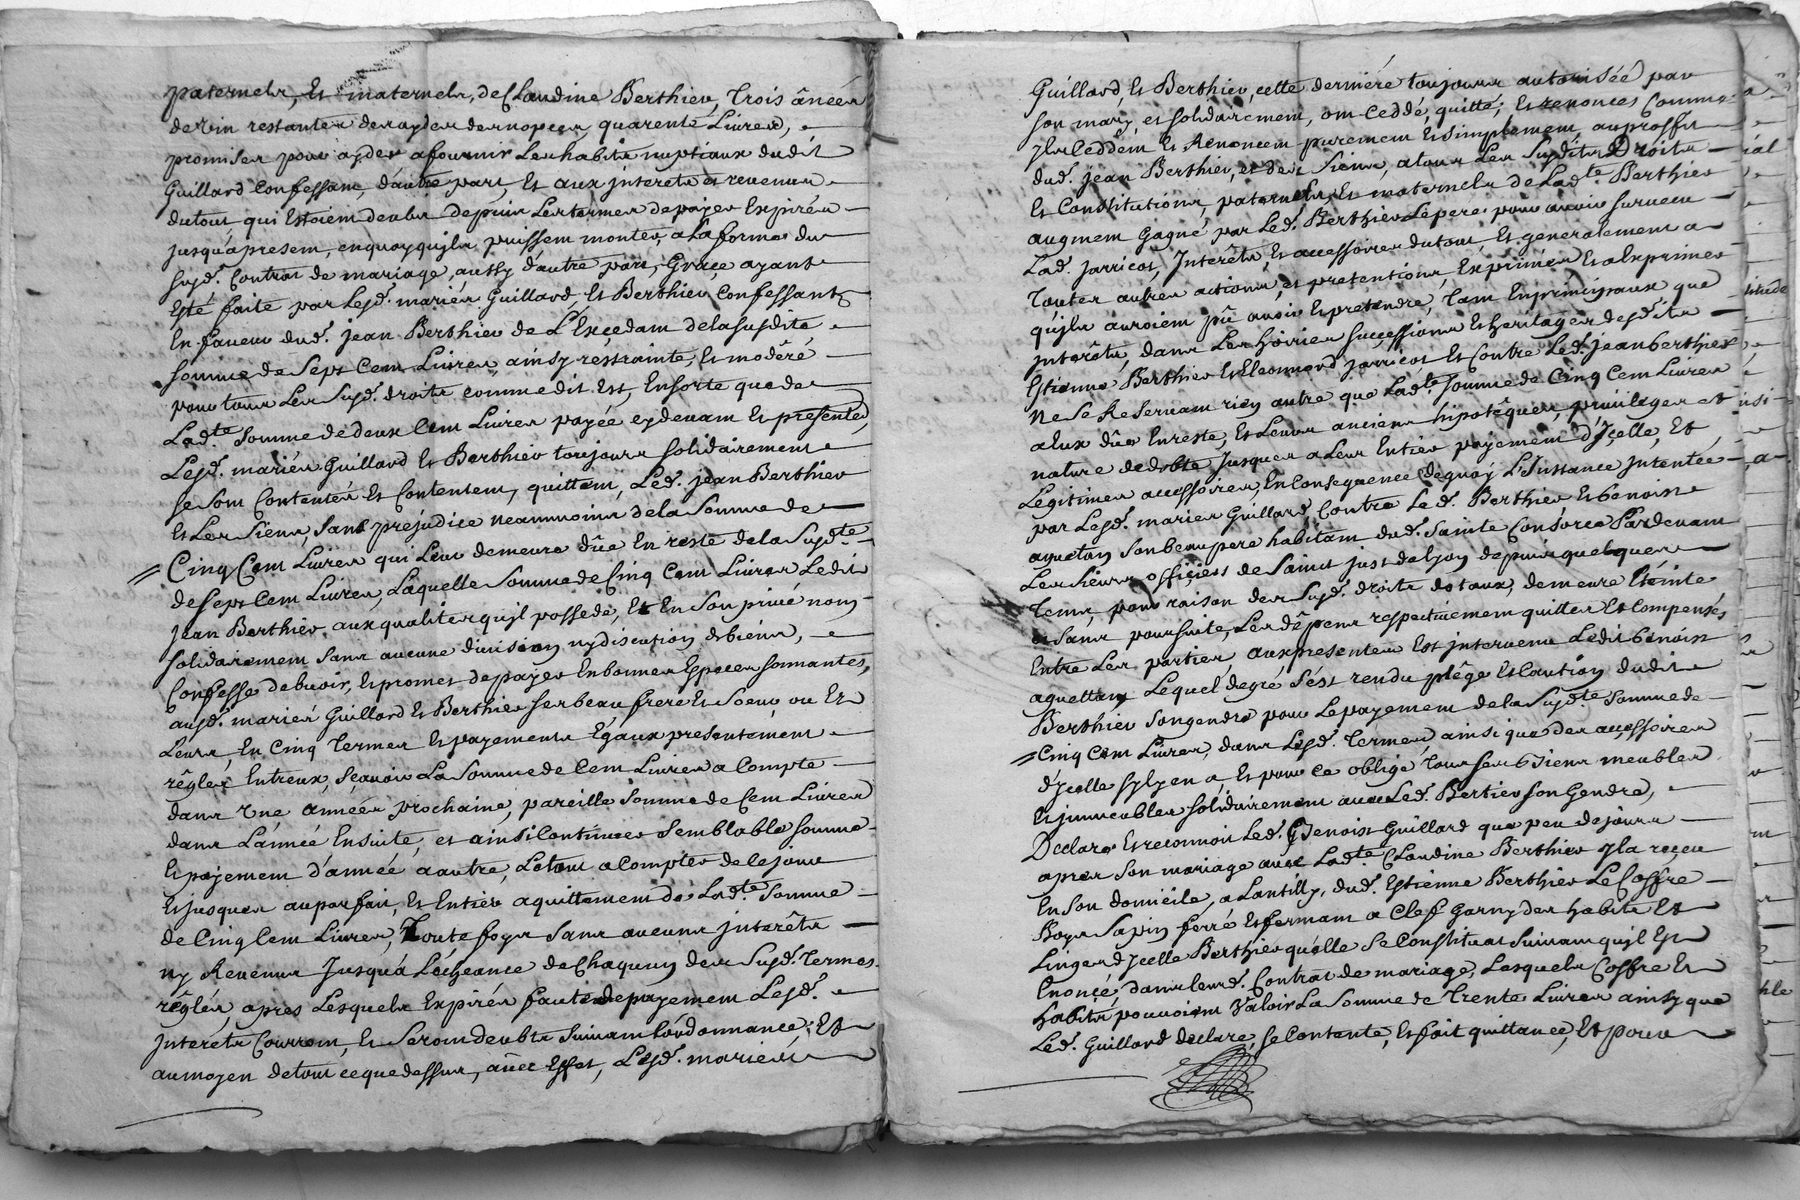 paternels, Et maternels, de Claudine Berthier, Trois ânées
de vin restantes des aydes de nopces, quarente Livres,
promises pour ayder a fournir Les habits nuptiaux dudit
Guillard Confessant, d'autre part, Et aux jnterets et revenus
du tout, qui Estoient deubs depuis Les termes de payer Expirés
jusqu'apresent, en quoy qu'jls puissent monter, a La forme du
susd. Contrat de mariage, aussy d'autre part, Grace ayant
Esté faite par Lesd. mariés Guillard, Et Berthier Confessants
En faveur dud. Jean Berthier de L'Excedant de la susdite
somme de Sept Cent Livres, ainsy restrainte, Et modéré
pour tous Les Susd. droits comme dit Est, En sorte que de
Ladte Somme de deux Cent Livres payée cy devant Et presente,
Lesd. mariés Guillard Et Berthier toujours solidairement
se sont Contentés Et Contentent, quittent, Led. jean Berthier
Et Les Siens, Sans prejudice neanmoins de la Somme de
Cinq Cent Livres qui Leur demeure dûe En reste de la Susdte
de Sept Cent Livres, Laquelle Somme de Cinq Cent Livres Ledit
Jean Berthier aux qualites qu'jl possede, Et En son privé nom
solidairement sans aucune division ny discution de biens,
Confesse debvoir, Et promet de payer En bonnes Especes sonnantes,
ausd. mariés Guillard Et Berthier ses beau frere Et Soeur ou Et
Leurs, En Cinq Termes Et payements Égaux presentement
réglés Entreux, sçavoir La Somme de Cent Livres a Compte
dans Une année prochaine, pareille Somme de Cent Livres
dans L'année Ensuite, et ainsi Continuer Semblable somme
Et payement d'année a autre, Le tout a Compter de Ce jour
Et jusques au parfait, Et Entier aquittement de Ladte Somme
de Cinq Cent Livres, Toute foys sans aucuns jnterêts
ny Revenus Jusqu'a L'échéance de Chaqun des Susd. Termes
réglés apres Lesquels Expirés faute de payement Lesd.
jnterêts Courront, Et Seront deubts Suivant L'ordonnance; Et
au moyen de tout ce que dessus, avec Effet, Lesd. mariés
Guillard, Et Berthier, cette derniére toujours autorisée par
son mary, et solidairement, ont Ceddé, quitté, Et renoncés Comme
jls Ceddent Et Renoncent purement Et simplement, au proffit
dud. jean Berthier, et des Siens, a tous Les Susdits Droits
Et Constitutions, paternels, Et maternels de Ladte Berthier
augment Gagné par Led. Berthier Le pere, pour avoir survecu
Lad. Jarricot, Jnterêts, Et accessoires du tout, Et generalement a
toutes autres actions, et pretentions, Exprimés Et a Exprimer
qu'jls auroient pû avoir Et pretendre, Tant En principaux que
jnterêts, dans Les hoiries successions Et heritages desdits
Estienne Berthier Et Eleonnord Jarricot, Et Contre Led. Jean berthier
Ne Se Reservant rien autre que Ladte Somme de Cinq Cent Livres
a Eux dûe En reste, Et Leurs anciens hipotêques, privileges et
nature de dotte Jusques a Leur Entier payement d'Jcelle, Et
Legitimes accessoires, En Consequence de quoy L'Jnstance Jntentée
par Lesd. mariés Guillard, Contre Led. Berthier Et benoist
aguettan Son beau pere habitant dud. Sainte Consorce Pardevant
Les Sieurs officiers de Saint just de Lyon depuis quelques
tems, pour raison des Susd. droits dotaux, demeure Eteinte
et Sans poursuite, Les dêpens respectivement quittes Et Compensés
Entre Les parties, aux presentes Est jntervenu Ledit benoist
aguettan Lequel de gré s'est rendu plêge Et Caution dudit
Berthier Son gendre pour Le payement de la Susdte Somme de
Cinq Cent Livres, dans Lesd. Termes, ainsi que des accessoires
d'jcelle s'jl y en a, Et pour ce obligé tous ses biens meubles
Et jmmeubles solidairement avec Led. Bertier Son Gendre,
Declare Et reconnoit Led. Benoist Guillard que peu de jours
apres Son mariage avec Ladte Claudine Berthier Jl a reçeu
En Son domicile, a Lantilly, dud. Estienne Berthier Le Coffre
Boys Sapin ferré Et fermant a Clef Garny des habits Et
Linges d'jcelle Berthier qu'elle Se Constituat Suivant qu'jl Est
Enoncé dans leurd. Contrat de mariage, Lesquels Coffre Et
habits pouvoient Valoir La Somme de Trente Livres ainsy que
Led. Guillard declare, se Contente, Et fait quittance, Et pour